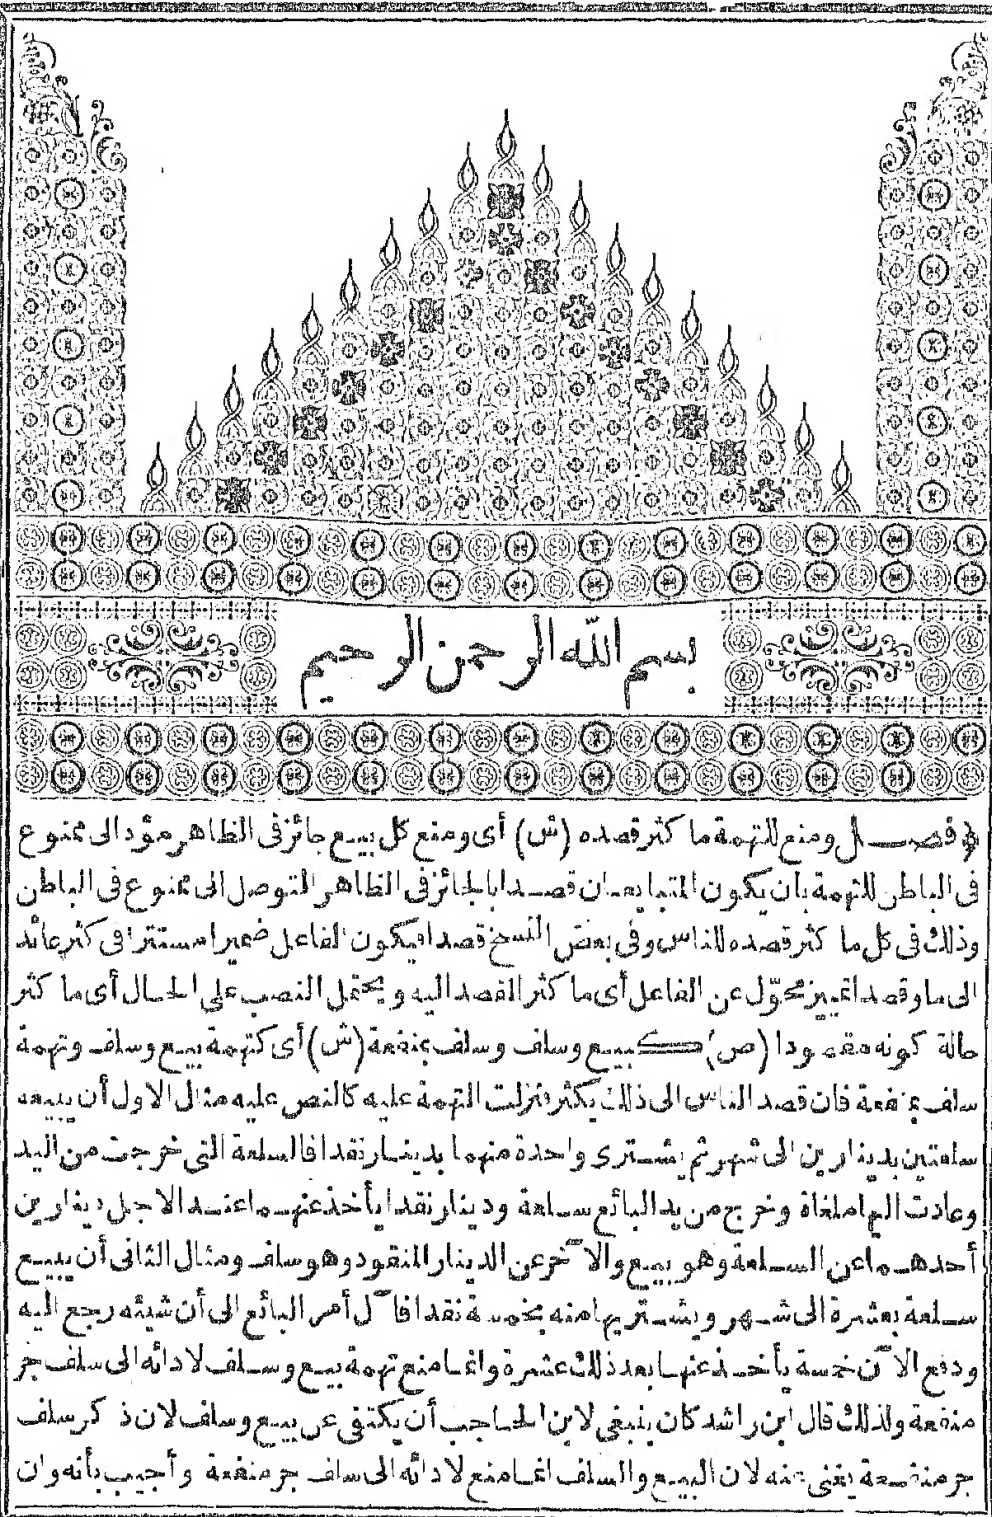 بسم الله الرحمن الرحيم
﴿فصــل ومنع للتهمة ما كثر قصده (ش) أى ومنع كل بيع جائز فى الظاهر مؤد الى ممنوع
فى الباطن للتهمة بان يكون المتبايعان قصدا بالجائز فى الظاهر التوصل الى ممنوع فى الباطن
وذلك فى كل ما كثر قصده للناس وفى بعض النسخ قصدا فيكون الفاعل ضميرا مستترا فى كثر عائد
الى ما وقصدا تمييز محوّل عن الفاعل أى ما كثر القصد اليه ويحتمل النصب على الحال أى ما كثر
حالة كونه مقصودا (ص) كبيع وسلف وسلف بمنفعة (ش) أى كتهمة بيع وسلف وتهمة
سلف بمنفعة فان قصد الناس الى ذلك يكثر فنزلت التهمة عليه كالنص عليه مثال الاول أن يبيعه
سلعتين بدينارين الى شهر ثم يشترى واحدة منهما بدينار نقدا فالسلعة التى خرجت من اليد
وعادت اليها ملغاة وخرج من يد البائع سلعة ودينار نقدا يأخذ عنهما عند الاجل دينارين
أحدهما عن السلعة وهو بيع والآخر عن الدينار المنقود وهو سلف ومثال الثانى أن يبيع
سلعة بعشرة الى شهر ويشتريها منه بخمسة نقدا فآل أمر البائع الى أن شيئه رجع اليه
ودفع الآن خمسة يأخذ عنها بعد ذلك عشرة وانما منع تهمة بيع وسلف لادائه الى سلف جر
منفعة ولذلك قال ابن راشد كان ينبغى لابن الحاجب أن يكتفى عن بيع وسلف لان ذكر سلف
جر منفعة يغنى عنه لان البيع والسلف انما منع لادائه الى سلف جر منفعة وأجيب بأنه وان